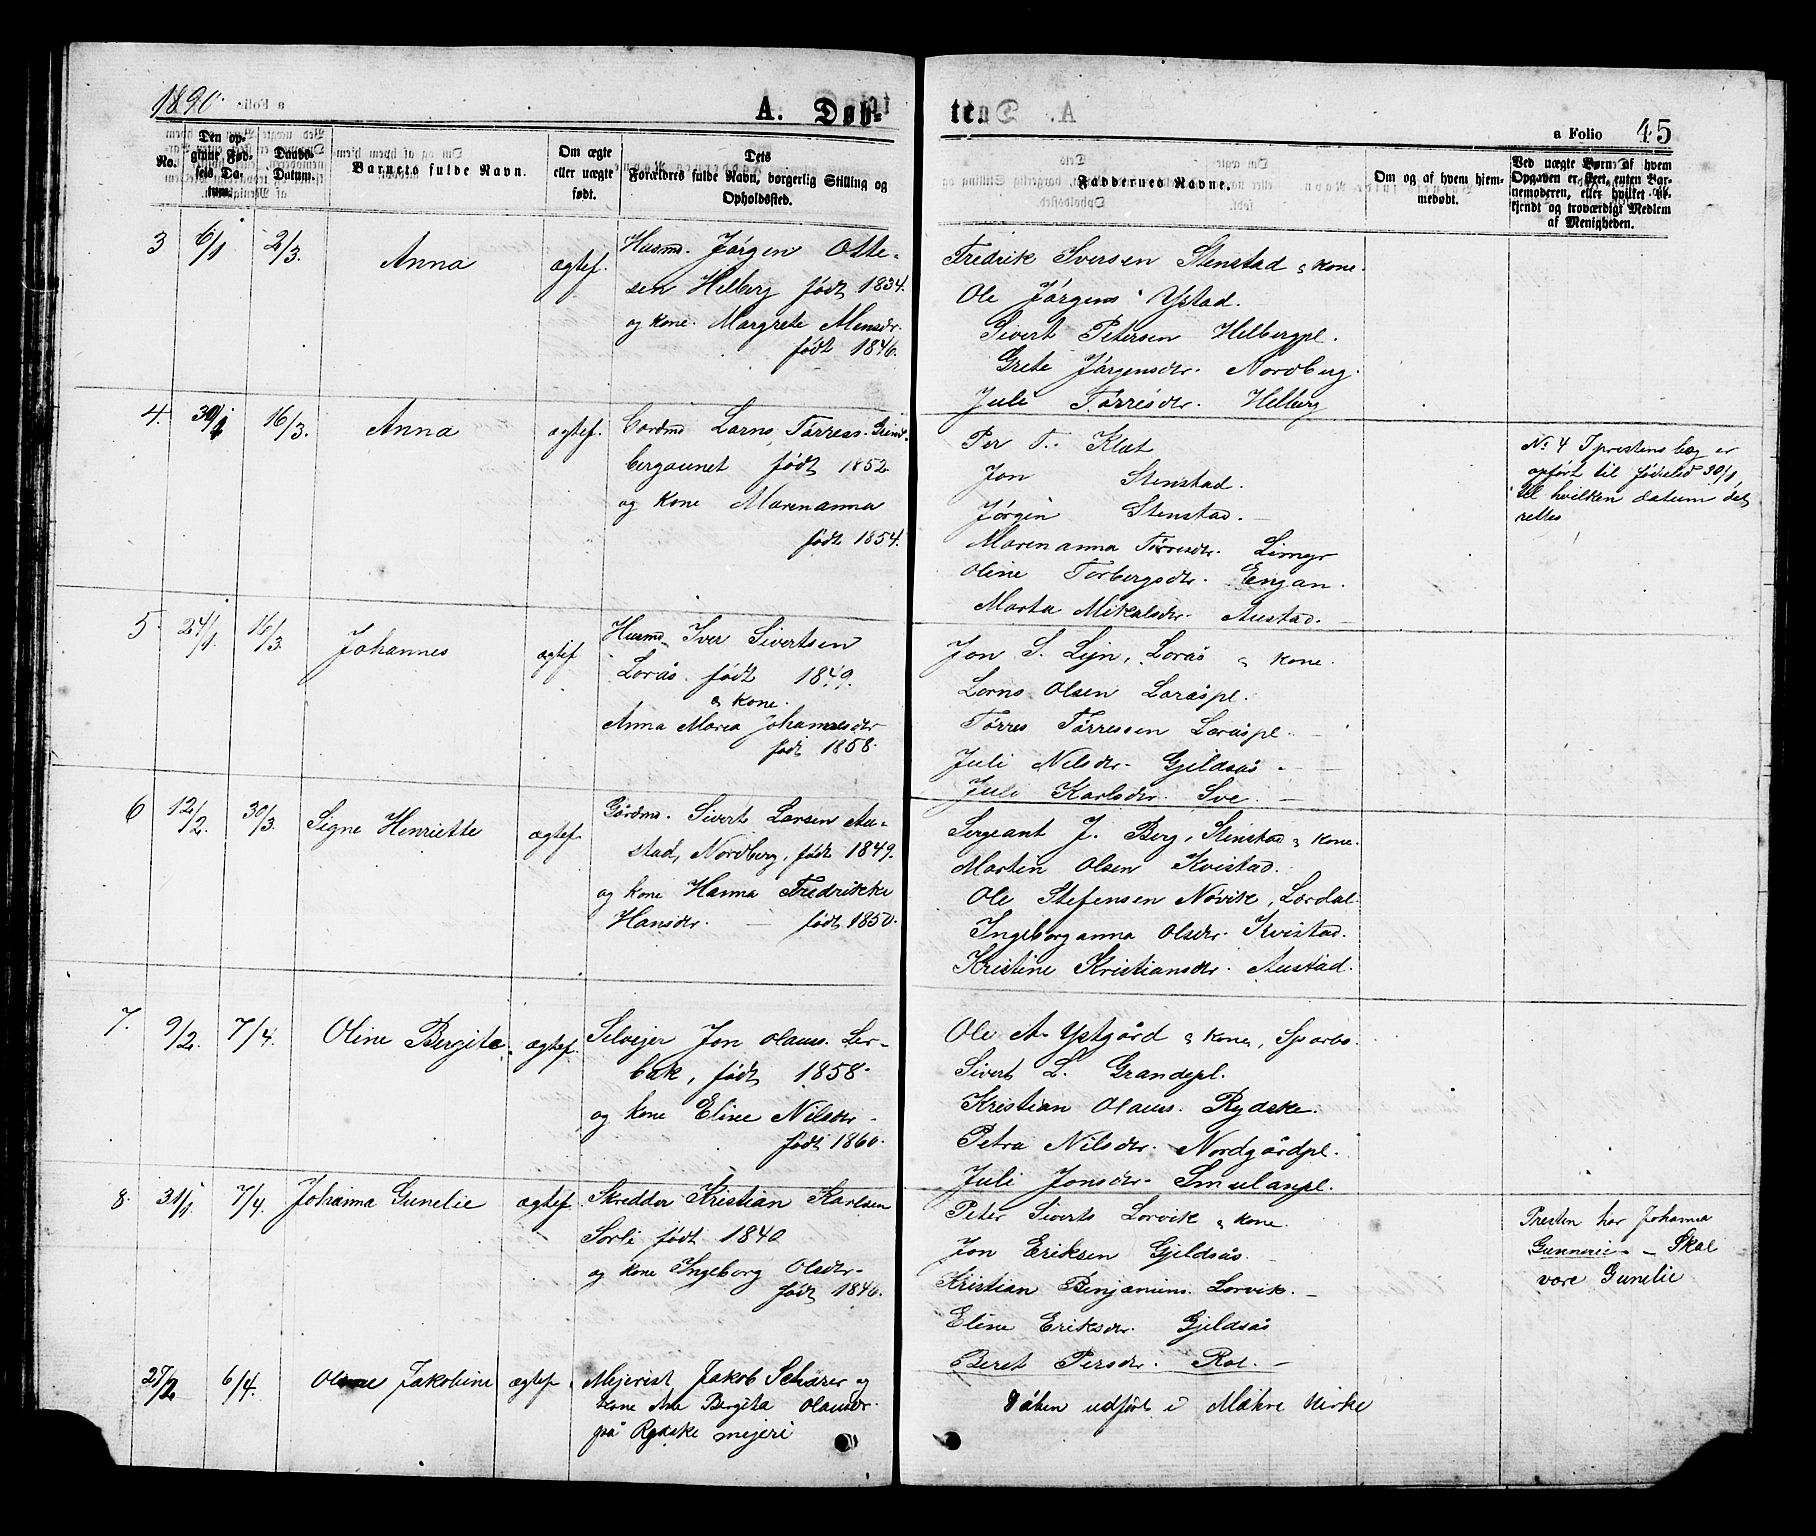 1890.
A. Døbte
a Folio 45
No.
Den opgivne Fødsels Datum.
Daabs-Datum.
Barnets fulde Navn.
Om ægte eller uægte født.
Dets Forældres fulde Navn, borgerlig Stilling og Opholdssted.
Faddernes Navne.
Om og af hvem hjemmedøbt.
Ved uægte Børn: af hvem Opgaven er skeet, enten Barnemoderen, eller hvilket bekjendt og troværdigt Medlem af Menigheden.
3 6/1 2/3. Anna ægtef.
Husmd. Jørgen Otte-
sen Helberg født 1834.
og kone. Margrete Monsdr.
født 1846.
Fredrik Iversen Stenstad & kone.
Ole Jørgens. Ystad.
Sivert Petersen Helbergpl.
Grete Jørgensdtr. Nordberg.
Juli Tørresdtr. Helberg
4. 30/1 16/3. Anna ægtef.
Gordmd Larns Tørress. Grind-
bergaunet født 1852
og kone Marenanna
født 1854.
Per T. Klæt
Jon Stenstad.
Jørgin Stenstad.
Marenanna Tørresdtr. Limyr
Oline Torbergsdtr. Engan.
Marta Mikalsdtr. Austad.
No 4 I prestens bog er
opført til fødselsd 30/1
til hvilken datum det
rettes
5 24/1 16/3. Johannes ægtef
Husmd. Iver Sivertsen
Lorås. født 1849.
& kone.
Anna Marea Johannesdtr
født 1858.
Jon S. Lyn, Lorås & kone.
Lorns Olsen Loråspl.
Tørres Tørressen Loråspl.
Juli Nilsdtr. Gjeldsås.
Juli Karlsdtr. Sve.
6 12/2. 30/3. Signe Henriette ægtef.
Gårdmd. Sivert Larsen Au-
stad, Nordberg, født 1849.
og kone Hanna Fredrikke
Hansdtr. født 1850.
Sergeant J. Berg, Stenstad & kone.
Martin Olsen Kvistad.
Ole Stefensen Nøvik, Lørdal.
Ingeborganna Olsdtr. Kvistad.
Kristine Kristiansdtr. Austad.
7. 9/2. 7/4. Oline Bergita. ægtef.
Selvejer Jon Olauss. Ler-
bak, født 1858.
og kone Eline Nilsdtr.
født 1860.
Ole A. Ystgård & kone, Sparbo.
Sivert L. Grandepl.
Kristian Olauss. Rydske.
Petra Nilsdtr. Nordgårdpl.
Juli Jonsdtr. Smulanpl.
8. 31/1 7/4. Johanna Gunelie ægtef.
Skredder Kristian Karlsen
Sorli født 1840
og kone Ingeborg Olsdtr.
født 1846.
Peter Siverts Lorvik & kone.
Jon Eriksen Gjeldsås.
Kristian Benjamins. Lorvik.
Eline Eriksdtr. Gjeldsås
Beret Persdtr. Rol.
Presten har Johanna
Gunnerie – Skal
vare Gunelie
27/2 6/4. Jakobine ægtef.
Mejerist Jakob Schärer og
kone Ane Bergita Olausdtr.
på Rydske mejeri
Dåben udført i Makre kirke